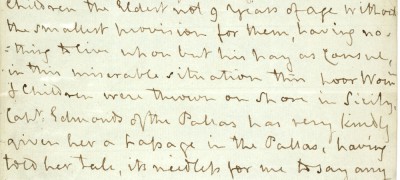 children the Eldest not 9 years of age without
the smallest provision for them, having no-
-thing to live upon but his pay as Consul,
in this miserable situation this poor Wom
& Children were thrown on shore in Sicily,
Capt. Edmonds of the Pallas has very kindly
given her a passage in the Pallas, having
told her tale, its needless for me to say any